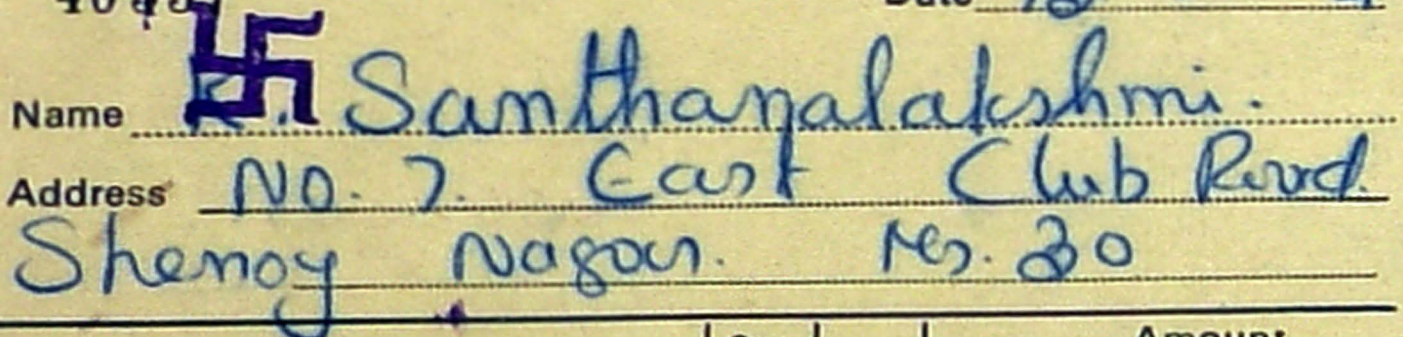 Name K. Santhanalakshmi.
Address No. 7. East Club Road.
Shenoy Nagar. Ms. 30